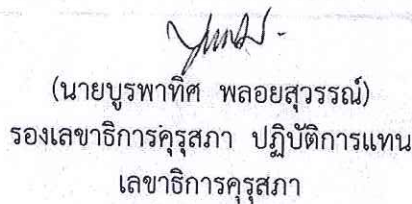 (นายบูรพาทิศ พลอยสุวรรณ์)
รองเลขาธิการคุรุสภา ปฏิบัติการแทน
เลขาธิการคุรุสภา